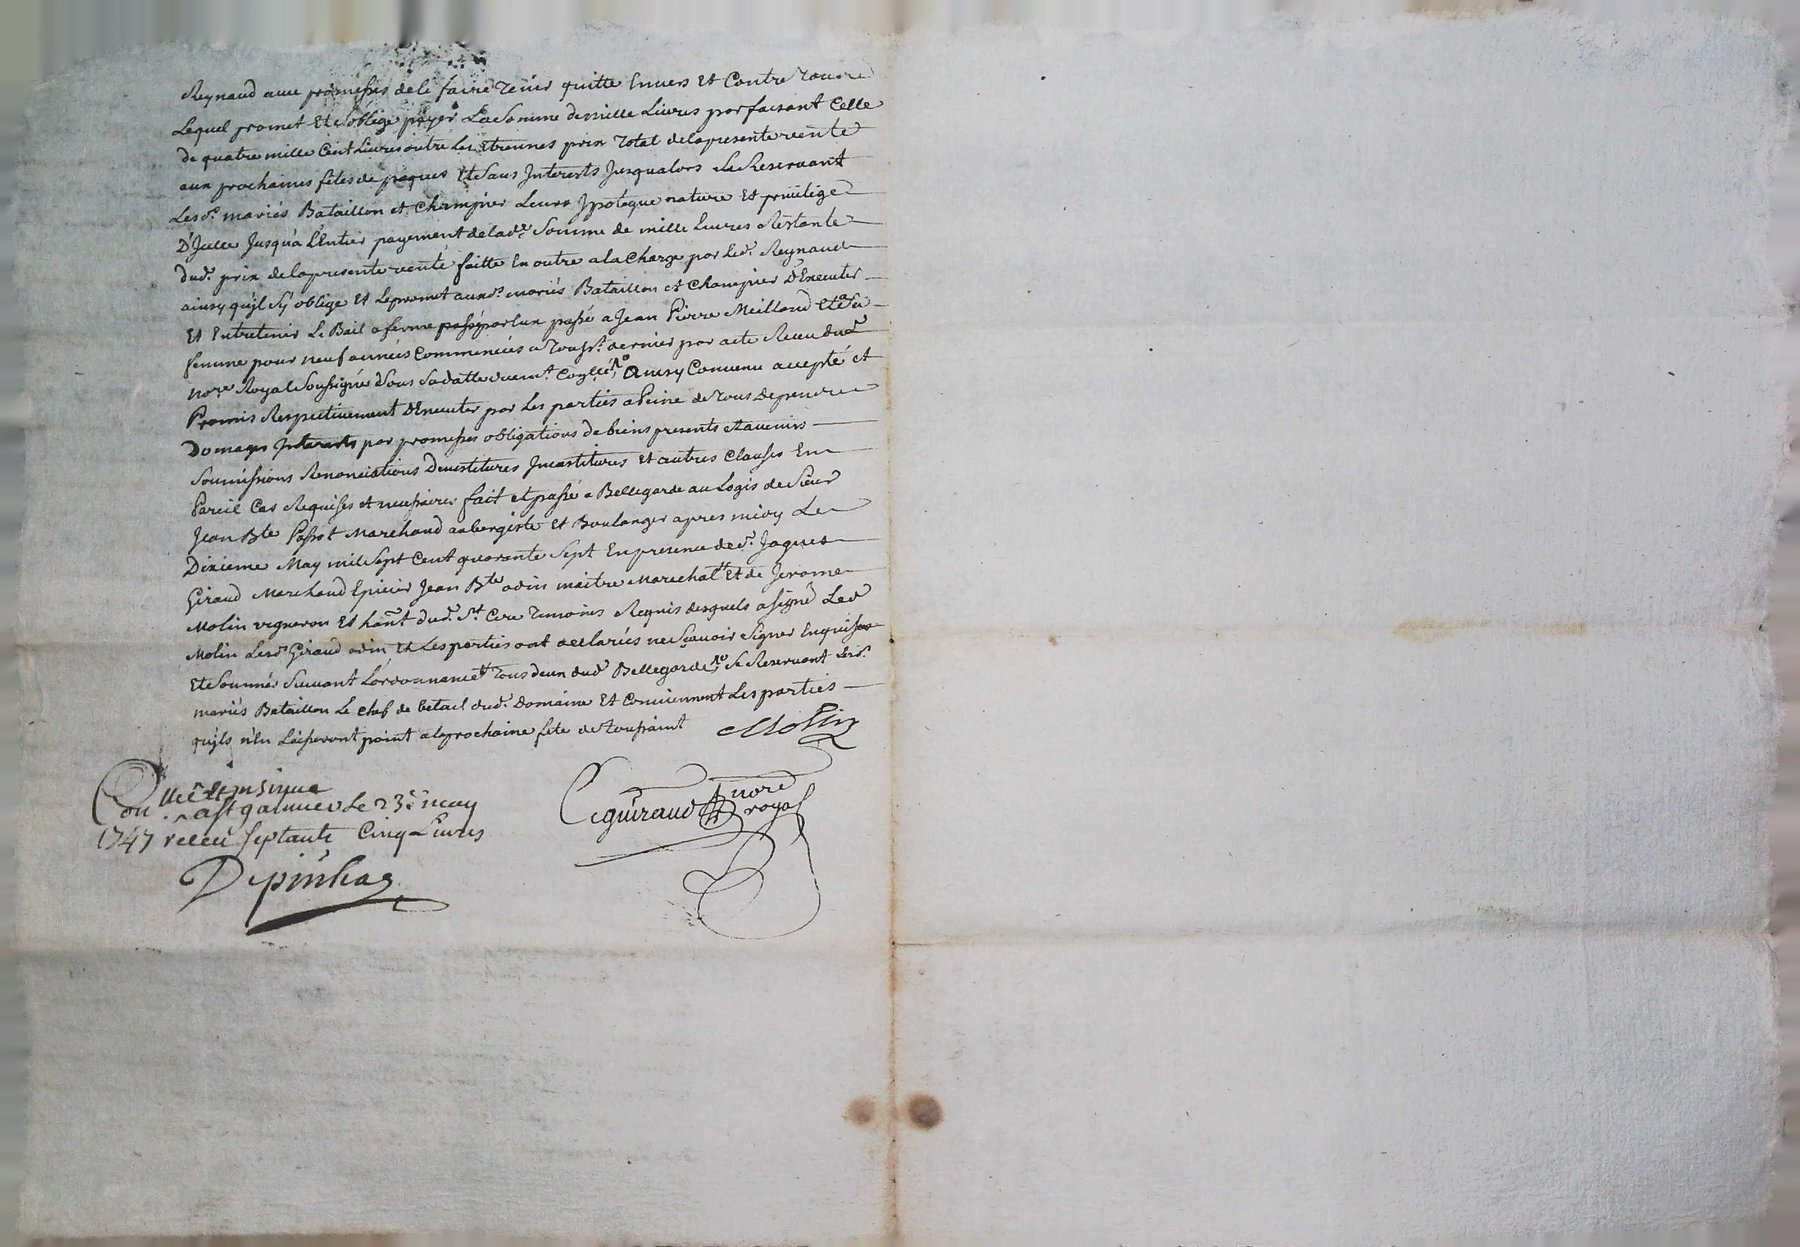 Reynaud avec promesses de le faire tenir quitte Envers Et Contre tous
Lequel promet Et s'oblige payer La Somme de mille Livres parfaisant Celle
de quatre mille Cent Livres outre les Etrennes prix total de la presente vente
aux prochaines fêtes de paques Et Sans Interests Jusqualors Se Reservant
Lesd.s mariés Bataillon et Champier Leurs Ypoteque nature Et privilege
D'Jcelle Jusqu'a L'Entier payement de lad.e Somme de mille Livres Restante
dud. prix de la presente vente faitte En outre a la Charge par Led. Reynaud
ainsy qu'jl s'y oblige Et Le promet auxd.s mariés Bataillon et Champier D'Executer
Et Entretenir Le Bail a ferme passé par l'un passé a Jean Pierre Meilland Et a sa
femme pour neuf années Commencées a Touss.t dernier par acte Receu dud.
no.re Royal Soussigné Sous Sa datte Ainsy Convenu accepté et
Promis Respectivement D'Executer par Les parties a Peine de tous Depends
Domages Interests par promesses obligations de biens presents et avenirs
Soumissions Renonciations Devestitures Jnvestitures Et autres Clauses En
Pareil Cas Requises et necessaires fait et passé a Bellegarde au Logis de Sieur
Jean Bte Passot Marchand aubergiste et Boulanger apres midy Le
Dixieme May mil Sept Cent quarante Sept En presence de Sr. Jaques
Giraud Marchand Epicier Jean Bte odin maitre Marechal Et de Jerome
Molin vigneron Et habt. dud. St Cire Temoins Requis desquels a signé Led
Molin Lesd. Giraud odin Et Les parties ont declarés ne Scavoir Signer Enquises
Et Sommés Suivant L'ordonnance Tous deux dud Bellegarde Se Reservant Lesd.
mariés Bataillon Le chef de betail dud. Domaine Et Conviennent Les parties
qu'jls n'En Laisseront point a la prochaine fete de Toussaint Molin
Colle Et Jnsinue
a St galmier Le 23e may
1747 receu septante Cinq Livres
Depinhac
Ceguiraud nore royal